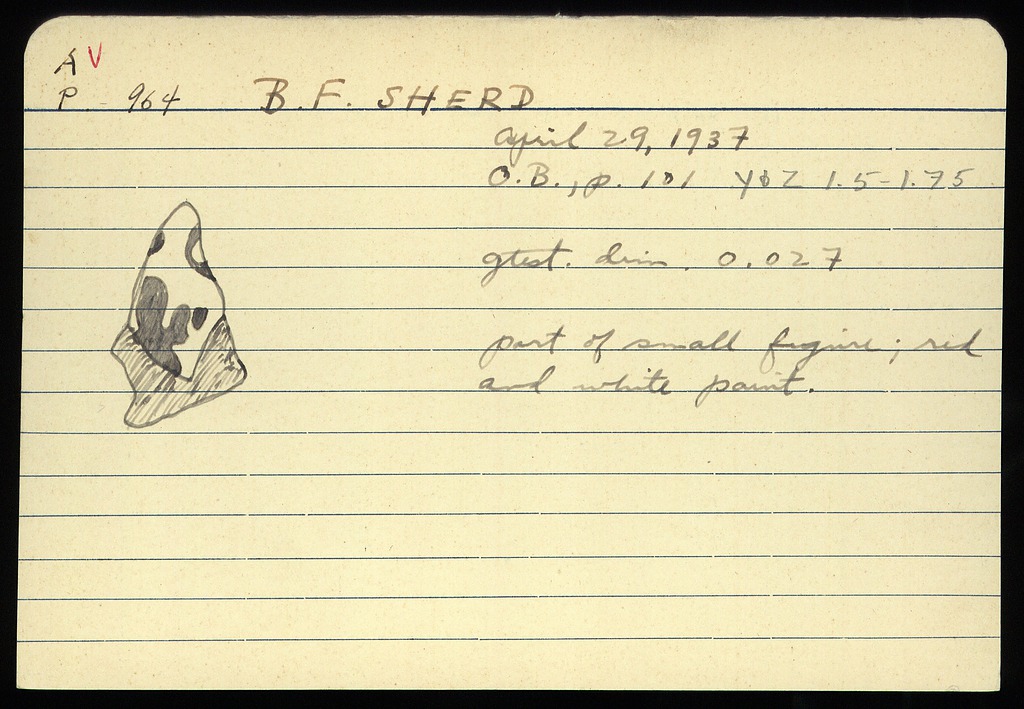 A V
P - 964 B.F. SHERD
April 29, 1937
O.B., p. 101 YΦZ 1.5-1.75
gtest. dim. 0.027
part of small figure; red
and white paint.